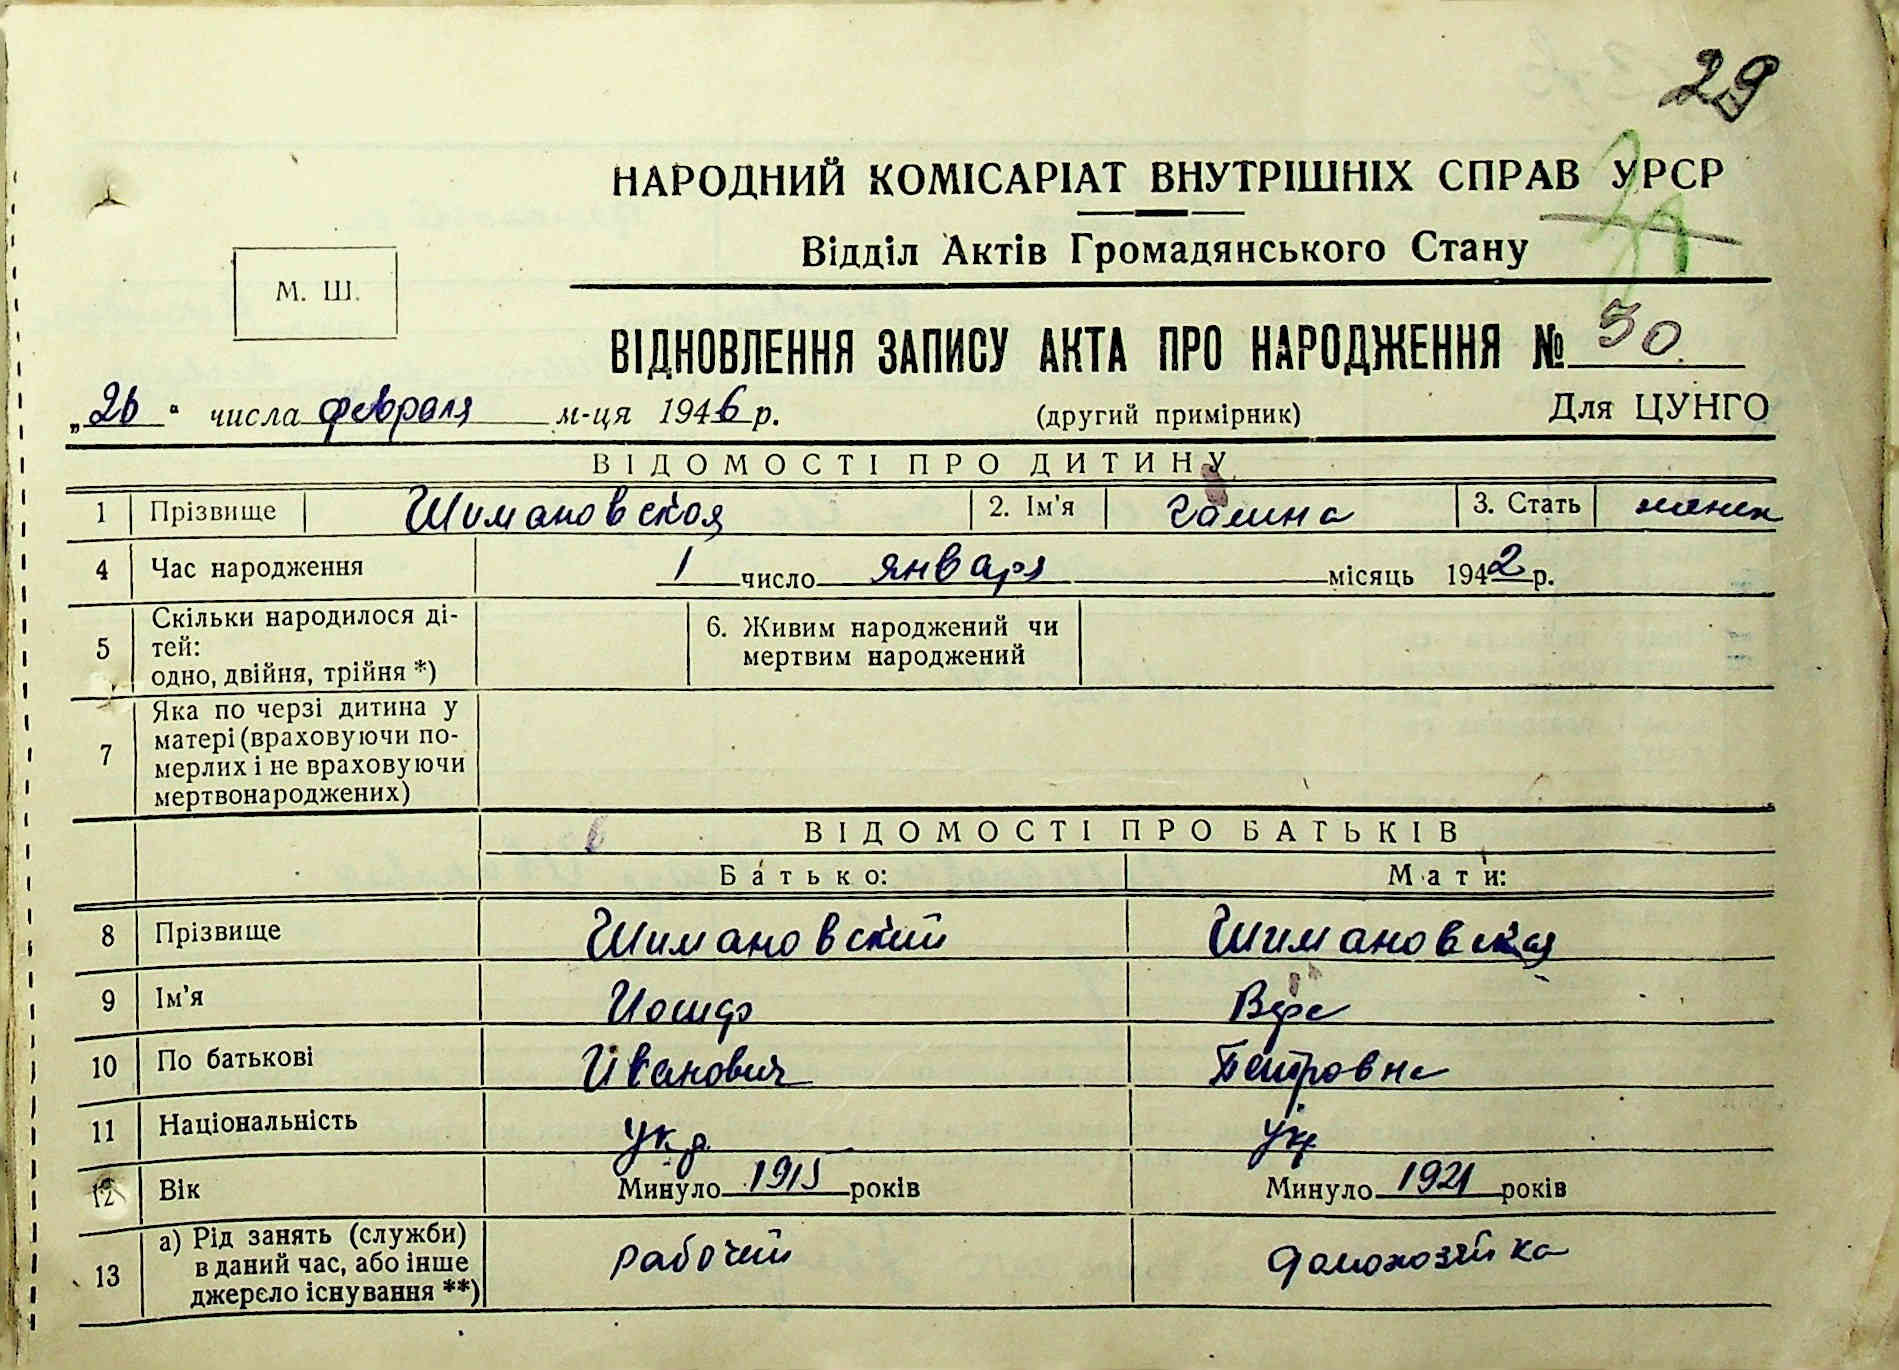 29
НАРОДНИЙ КОМІСАРІАТ ВНУТРІШНІХ СПРАВ УРСР
Відділ Актів Громадянського Стану
М. Ш.
ВІДНОВЛЕННЯ ЗАПИСУ АКТА ПРО НАРОДЖЕННЯ № 30
„26“ числа февраля м-ця 1946 р. (другий примірник) Для ЦУНГО
ВІДОМОСТІ ПРО ДИТИНУ
1 Прізвище Шимановская 2. Ім'я Галина 3. Стать женск
4 Час народження 1 число января місяць 1942 р.
5 Скільки народилося ді-
тей:
одно, двійня, трійня *)
6. Живим народжений чи
мертвим народжений
7 Яка по черзі дитина у
матері (враховуючи по-
мерлих і не враховуючи
мертвонароджених)
ВІДОМОСТІ ПРО БАТЬКІВ
Батько: Мати:
8 Прізвище Шимановский Шимановская
9 Ім'я Иосиф Вера
10 По батькові Иванович Петровна
11 Національність укр. укр
12 Вік Минуло 1915 років Минуло 1921 років
13 а) Рід занять (служби)
в даний час, або інше
джерело існування **)
рабочий домохозяйка